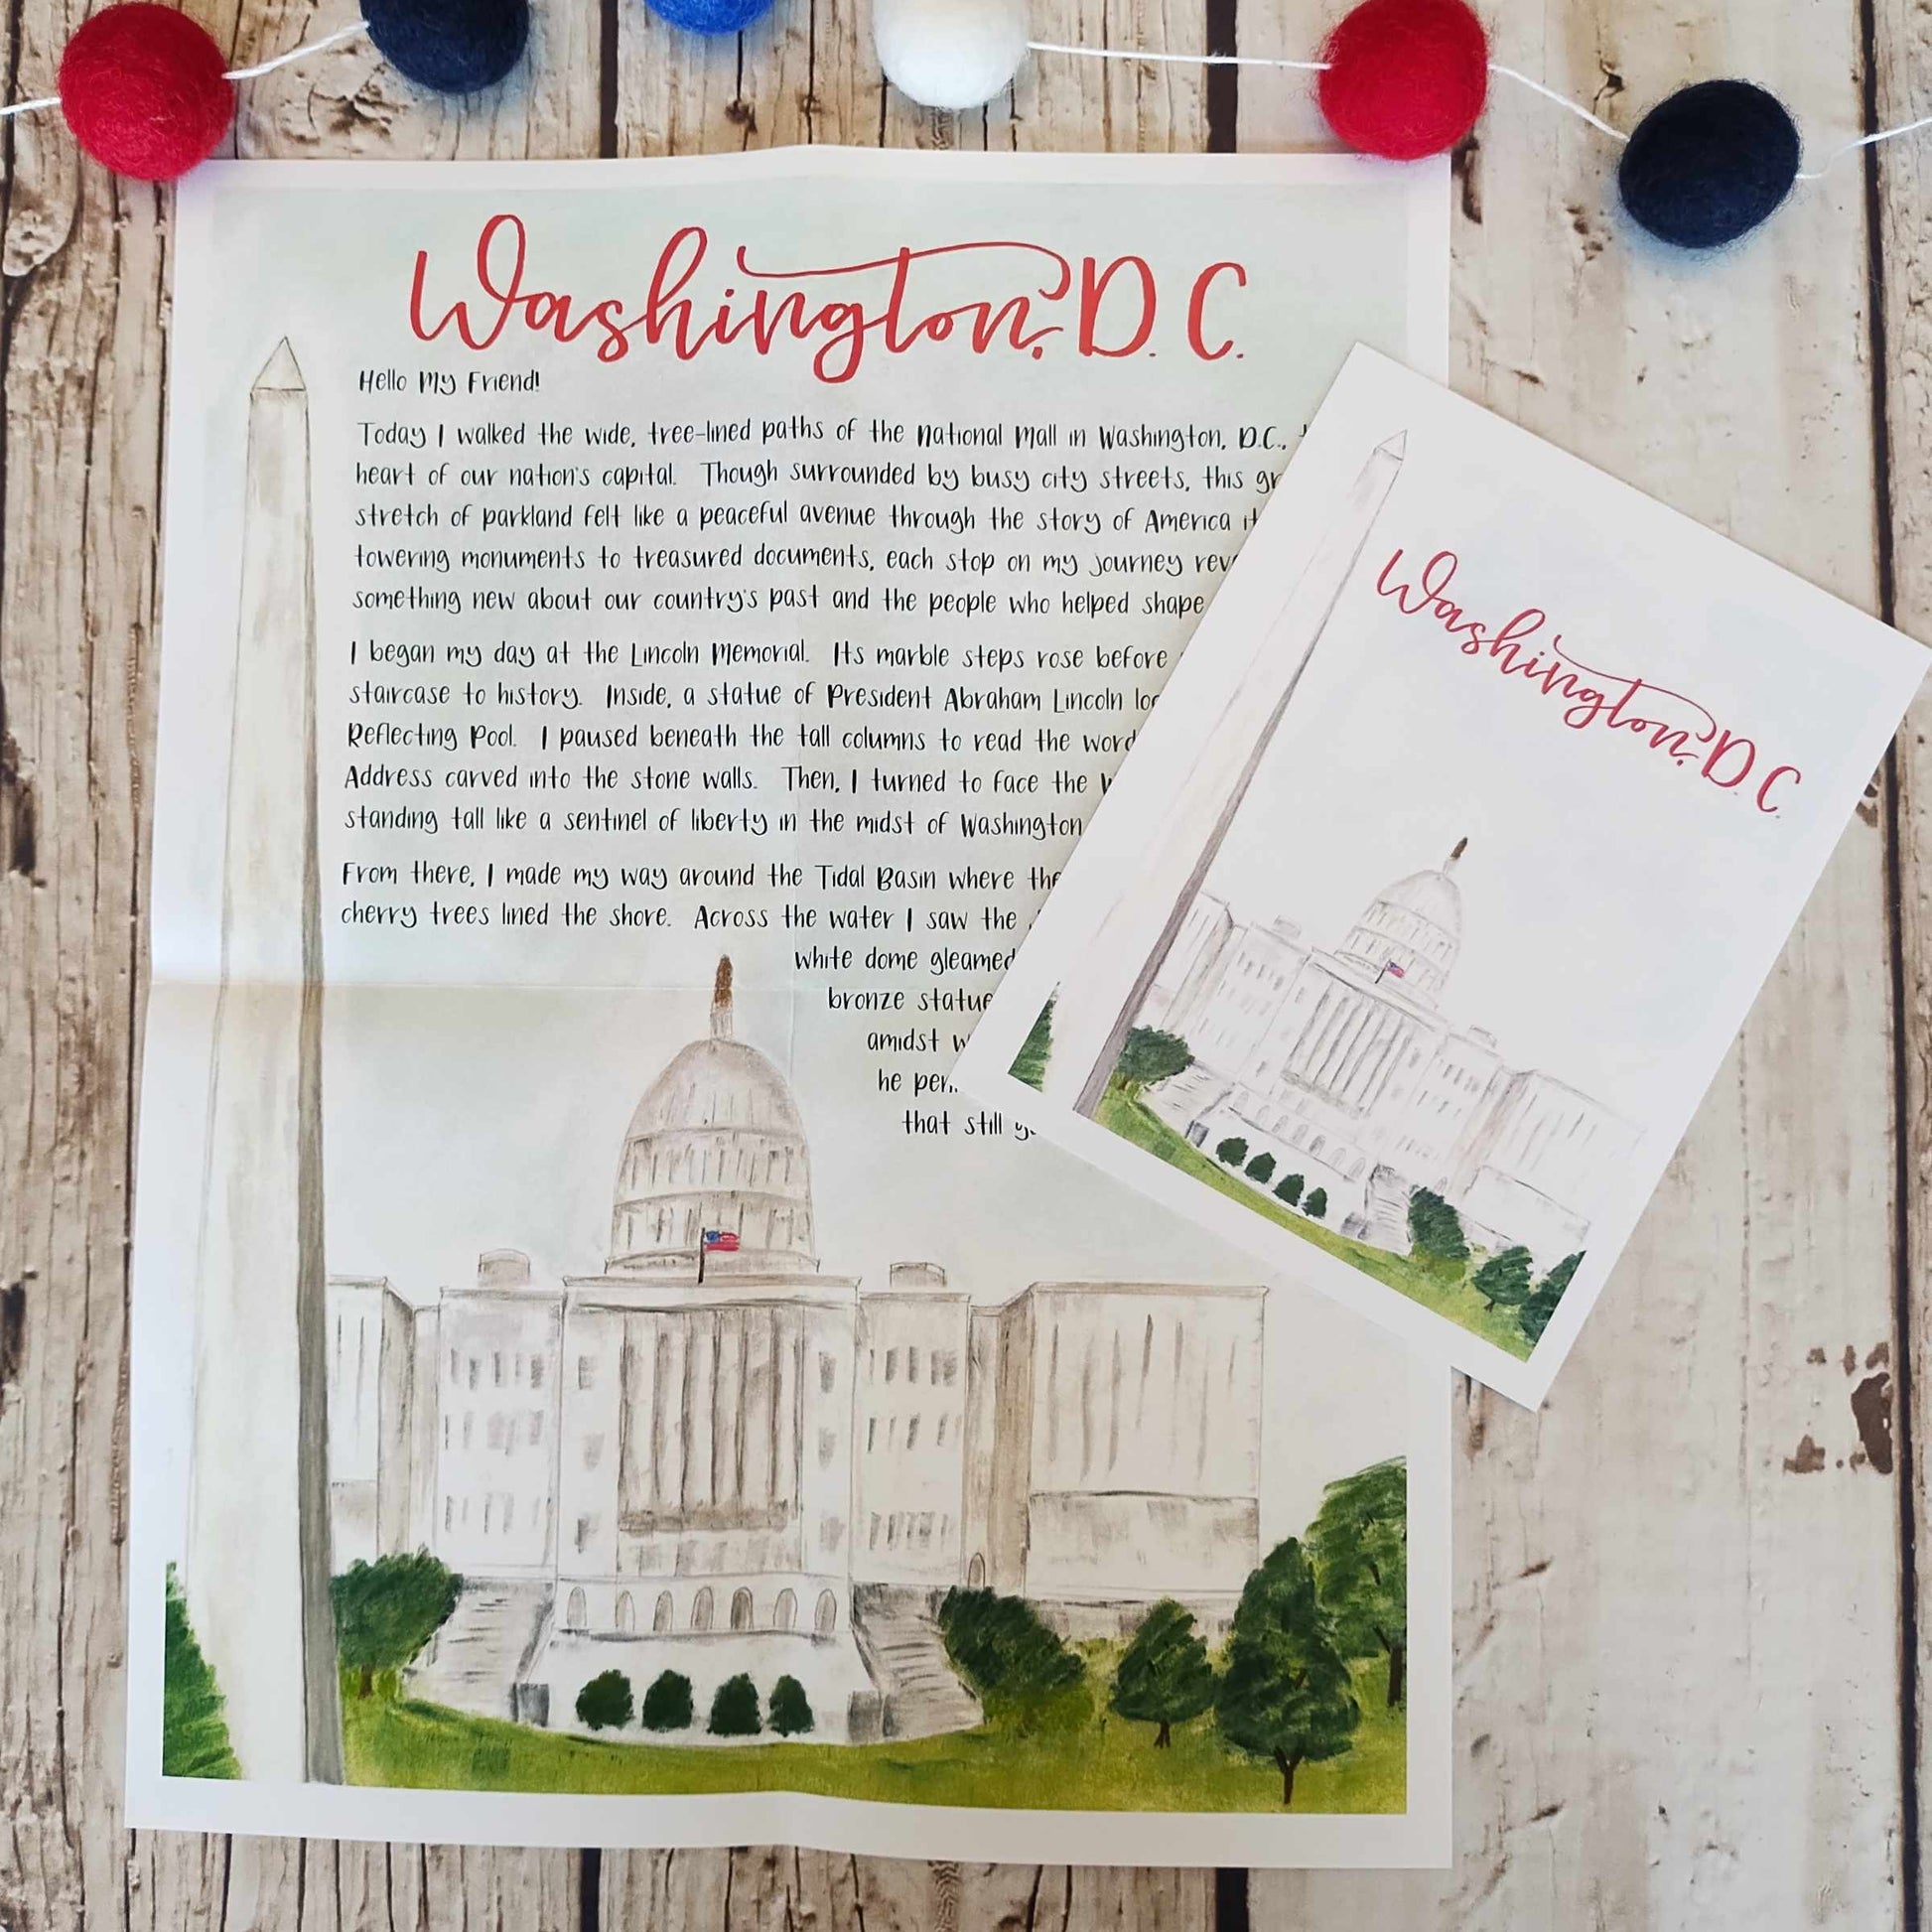 Washington, D.C.
Hello My Friend!
Today I walked the wide, tree-lined paths of the National Mall in Washington, D.C.,
heart of our nation's capital. Though surrounded by busy city streets, this
stretch of parkland felt like a peaceful avenue through the story of America
towering monuments to treasured documents, each stop on my journey
something new about our country's past and the people who helped shape
I began my day at the Lincoln Memorial. Its marble steps rose before
staircase to history. Inside, a statue of President Abraham Lincoln
Reflecting Pool. I paused beneath the tall columns to read the
Address carved into the stone walls. Then, I turned to face the
standing tall like a sentinel of liberty in the midst of Washington
From there, I made my way around the Tidal Basin where
cherry trees lined the shore. Across the water I saw the
white dome gleamed
bronze statue
amidst
he
that still
Washington, D.C.